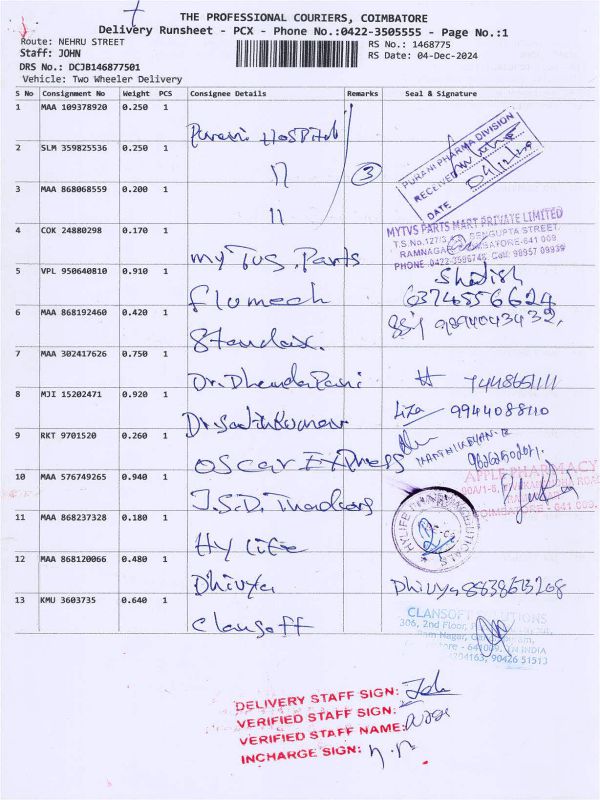 THE PROFESSIONAL COURIERS, COIMBATORE
Delivery Runsheet - PCX - Phone No.:0422-3505555 - Page No.:1
Route: NEHRU STREET
RS No.: 1468775
Staff: JOHN
RS Date: 04-Dec-2024
DRS No.: DCJB146877501
Vehicle: Two Wheeler Delivery
S No Consignment No Weight PCS Consignee Details Remarks Seal & Signature
1 MAA 109378920 0.250 1
Purani Hospital
PURANI PHARMA DIVISION
RECEIVED
DATE
2 SLM 359825536 0.250 1
11
3
3 MAA 868068559 0.200 1
11
4 COK 24880298 0.170 1
my Tvs. Parts
MYTVS PARTS MART PRIVATE LIMITED
SENGUPTA STREET
RAMNAGAR, COIMBATORE-641 009
PHONE :0422-3596748, Cell: 98957 09939
5 VPL 950640810 0.910 1
Flomech
Shatish
6374856624
6 MAA 868192460 0.420 1
7 MAA 302417626 0.750 1
7448651111
8 MJI 15202471 0.920 1
Dr. Sathikumar
Liza 9944088110
9 RKT 9701520 0.260 1
Oscar Express
KARTHIKEYAN.R
10 MAA 576749265 0.940 1
J.S.D. Traders
APPLE PHARMACY
COIMBATORE - 641 009.
11 MAA 868237328 0.180 1
Hylife
HYLIFE PHARMACEUTICALS
12 MAA 868120066 0.480 1
Dhivya
Dhivya 8838613268
13 KMU 3603735 0.640 1
Clansoft
CLANSOFT SOLUTIONS
306, 2nd Floor,
Ram Nagar,
641009, TN INDIA
4204163, 90426 51513
DELIVERY STAFF SIGN:
VERIFIED STAFF SIGN:
VERIFIED STAFF NAME:
INCHARGE SIGN: